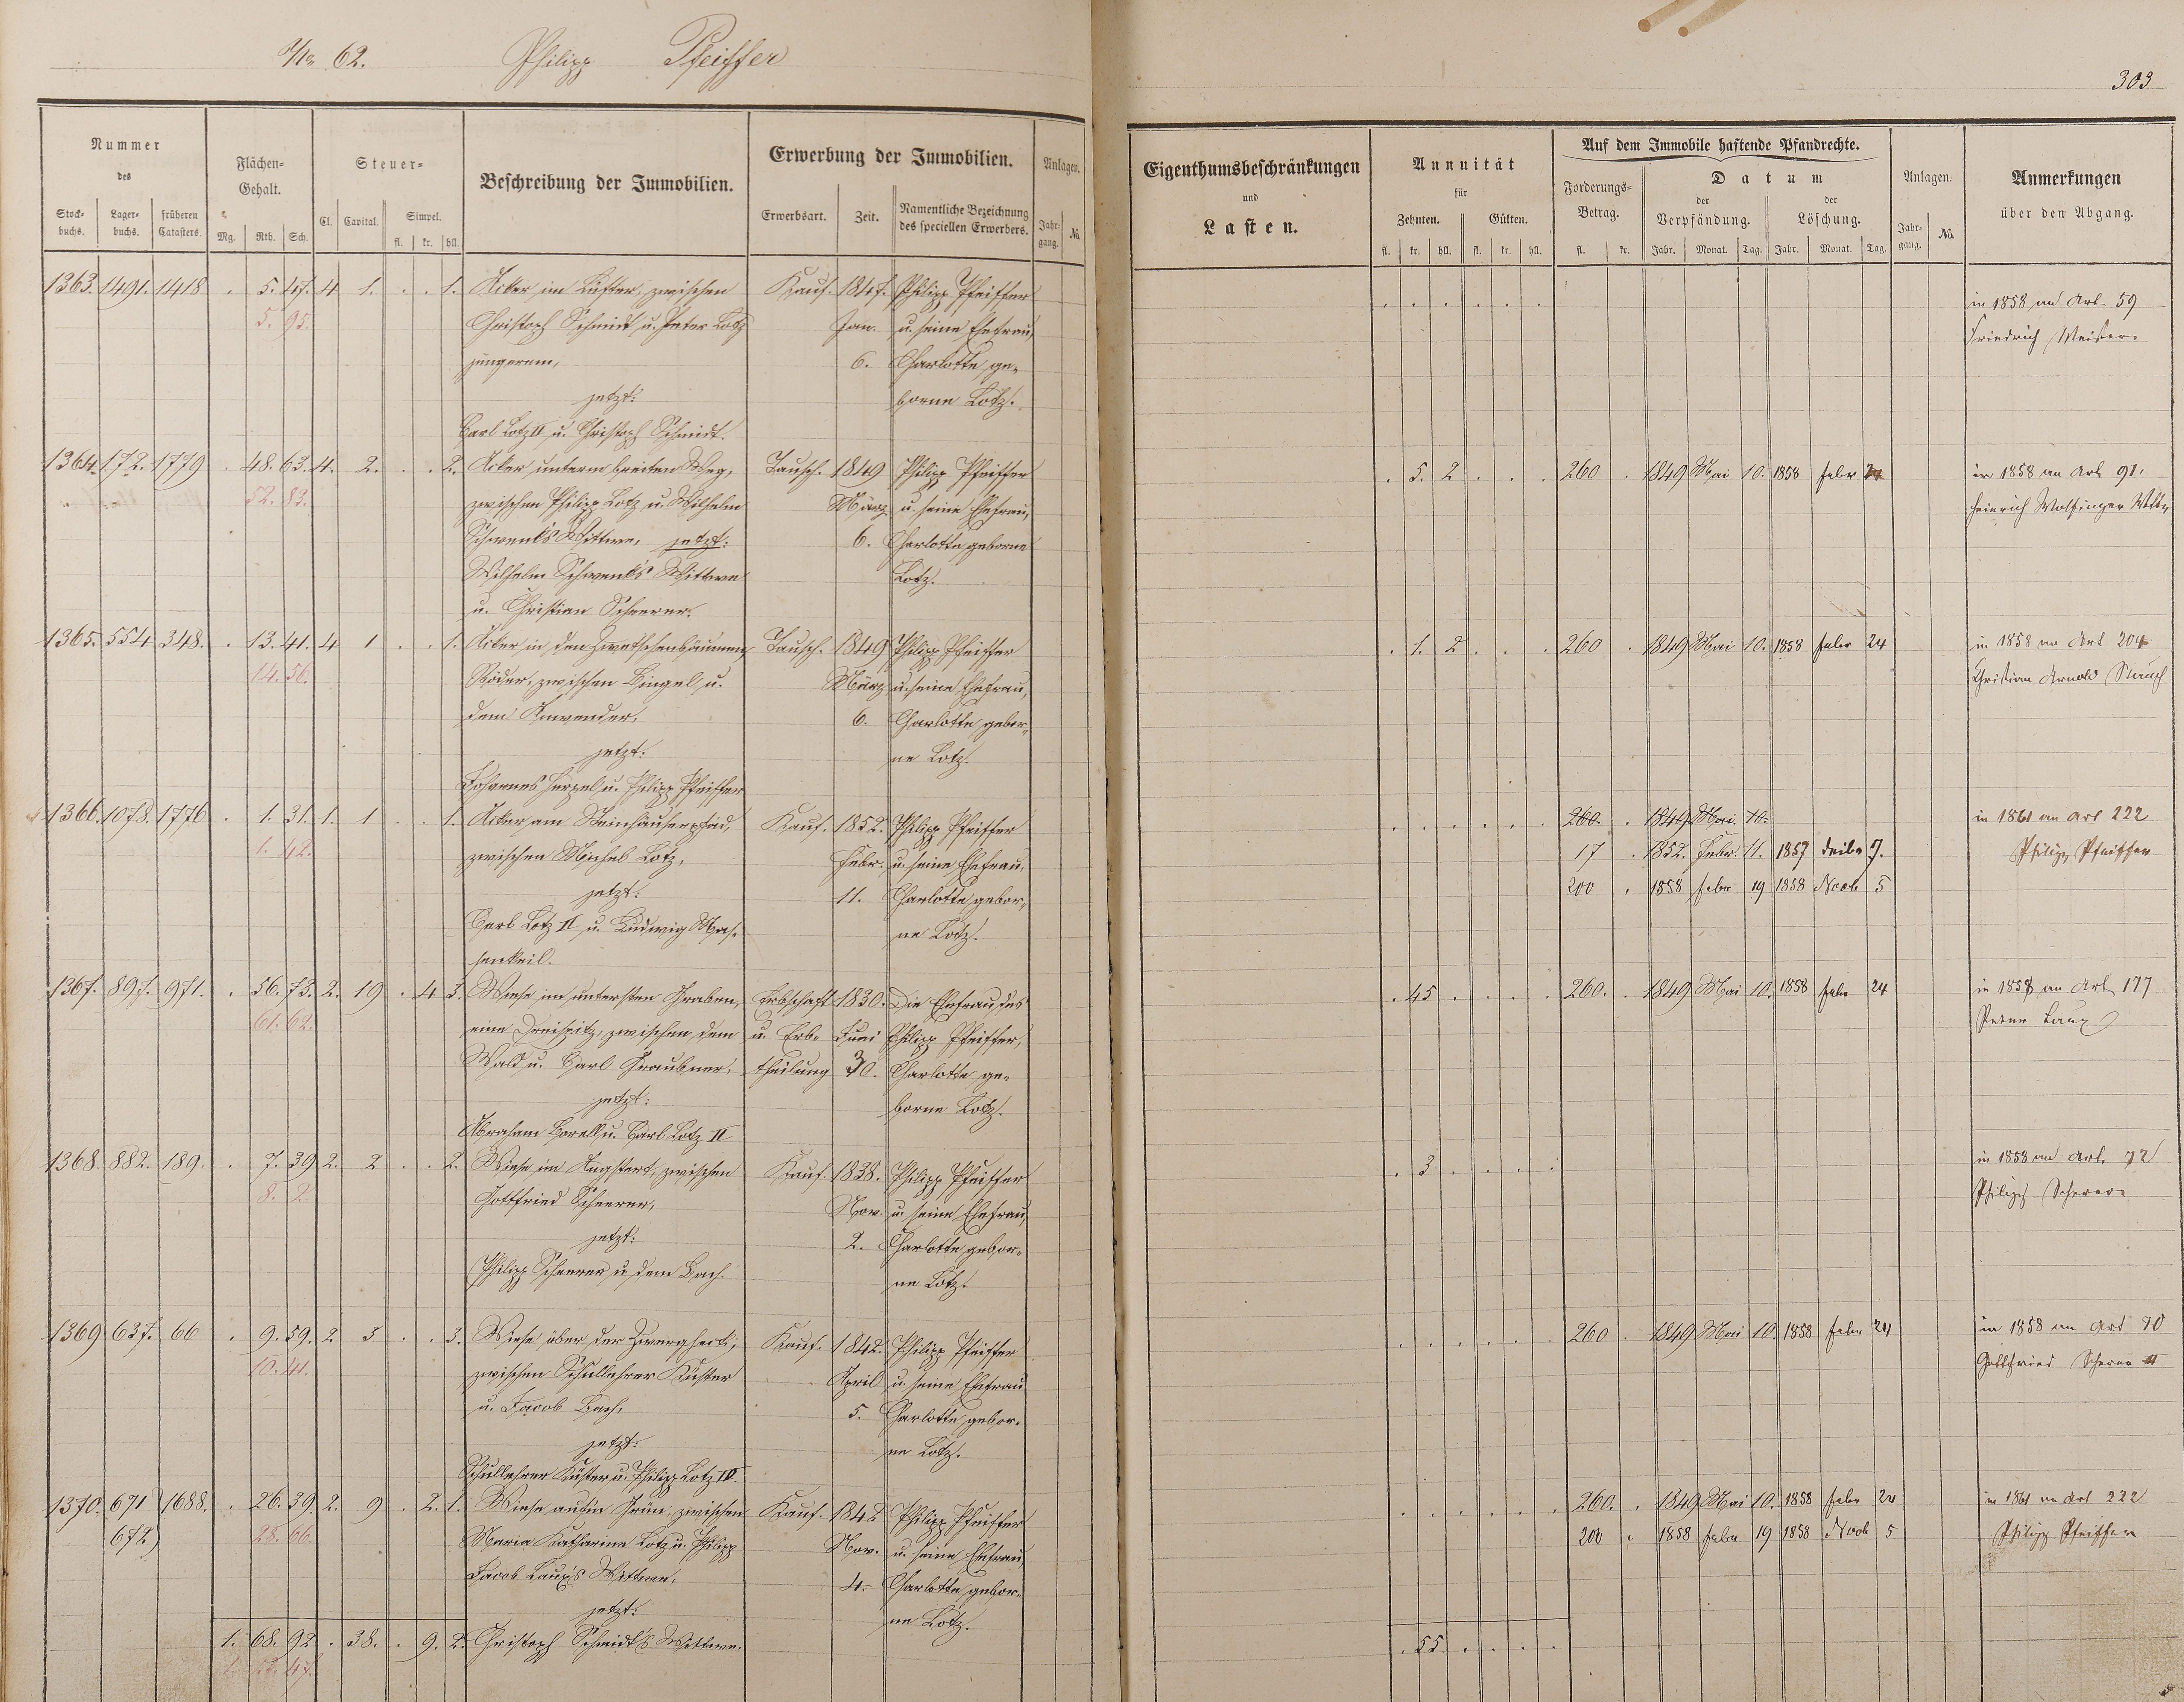 No 62. Philipp Pfeiffer
303
Nummer des
Stockbuchs. Lagerbuchs. früheren Catasters.
Flächen-Gehalt.
Mg. Rth. Sch.
Steuer-
Cl. Capital. Simpel.
fl. kr. hll.
Beschreibung der Immobilien.
Erwerbung der Immobilien.
Erwerbsart. Zeit. Namentliche Bezeichnung des speciellen Erwerbers.
Anlagen.
Jahrgang. No
Eigenthumsbeschränkungen
und
Lasten.
Annuität
für
Zehnten. Gülten.
fl. kr. hll. fl. kr. hll.
Auf dem Immobile haftende Pfandrechte.
Forderungs-Betrag.
fl. kr.
Datum
der Verpfändung. der Löschung.
Jahr. Monat. Tag. Jahr. Monat. Tag.
Anlagen.
Jahrgang. No
Anmerkungen
über den Abgang.
1363. 1491. 1418 . 5. 47. 4 1. . . 1. Acker im Lüster, zwischen Kauf. 1847. Philipp Pfeiffer in 1858 an Art 59
5. 95. Christoph Schmidt u. Peter Lotz Jan. u. seine Ehefrau, Friedrich
jüngerem, 6. Charlotte ge-
jetzt: borne Lotz.
Carl Lotz II u. Christoph Schmidt.
1364. 172. 1779 . 48. 63. 4. 2. . . 2. Acker unterm breiten Weg, Tausch. 1849 Philipp Pfeiffer . 5. 2 . . . 260 . 1849 Mai 10. 1858 Febr 24 in 1858 an Art 91.
52. 83. zwischen Philipp Lotz u. Wilhelm März u. seine Ehefrau, Heinrich
Schwenk's Wittwe, jetzt: 6. Charlotte geborne
Wilhelm Schwenk's Wittwe Lotz.
u. Christian Scheerer.
1365. 554 348. . 13. 41. 4 1 . . 1. Acker in den Zwetschenbäumen, Tausch. 1849 Philipp Pfeiffer . 1. 2 . . . 260 . 1849 Mai 10. 1858 Febr 24 in 1858 an Art 204
14. 56. Röder, zwischen Bingel u. März u. seine Ehefrau, Christian Arnold
dem Anwender, 6. Charlotte gebor-
jetzt: ne Lotz.
Johannes Herzel u. Philipp Pfeiffer
1366. 1078. 1776 . 1. 31. 1. 1 . . 1. Acker am Steinhäuserpfad, Kauf. 1852. Philipp Pfeiffer . . . . . . 260. . 1849 Mai 10. in 1861 an Art 222
1. 42. zwischen Michel Lotz, Febr. u. seine Ehefrau, 17 . 1852. Febr. 11. 1857 7. Philipp Pfeiffer
jetzt: 11. Charlotte gebor- 200 . 1858 Febr 19 1858 Novb 5
Carl Lotz II u. Ludwig Mas- ne Lotz.
senkeil.
1367. 897. 971. . 56. 73. 2. 19 . 4 3. Wiese im untersten Graben, Erbschaft 1830. Die Ehefrau des . 45 . . . . 260. . 1849 Mai 10. 1858 Febr 24 in 1858 an Art 177
61. 62. eine Dreispitz, zwischen dem u. Erb- Juni Philipp Pfeiffer, Peter Laux
Wald u. Carl Graubner, theilung 30. Charlotte ge-
jetzt: borne Lotz.
Abraham Borell u. Carl Lotz II
1368. 882. 189. . 7. 39 2. 2 . . 2. Wiese im Angstert, zwischen Kauf. 1838. Philipp Pfeiffer . 3 . . . . in 1858 an Art. 72
8. 2 Gottfried Scheerer, Nov. u. seine Ehefrau, Philipp Scherer
jetzt: 2. Charlotte gebor-
Philipp Scheerer u dem Bach. ne Lotz.
1369 637. 66 . 9. 59. 2 3 . . 3. Wiese über der Zwerghecke, Kauf. 1842. Philipp Pfeiffer . . . . . . 260 . 1849 Mai 10. 1858 Febr 24 in 1858 an Art 70
10. 41. zwischen Schullehrer Küster April u. seine Ehefrau Gottfried Scherer II
u. Jacob Bach, 5. Charlotte gebor-
jetzt: ne Lotz.
Schullehrer Küster u. Philipp Lotz IV.
1370. 671 1688. . 26. 39. 2. 9 . 2. 1. Wiese auf'm Grün, zwischen Kauf. 1842 Philipp Pfeiffer . . . . . . 260. . 1849 Mai 10. 1858 Febr 24 in 1861 an Art 222
672 28. 66. Maria Katharine Lotz u. Philipp Nov. u. seine Ehefrau 200 . 1858 Febr 19 1858 Novb 5 Philipp Pfeiffer
Jacob Laux's Wittwe, 4. Charlotte gebor-
jetzt: ne Lotz.
1. 68. 92 . 38. . 9. 2. Christoph Schmidt's Wittwe. . 55 . . . .